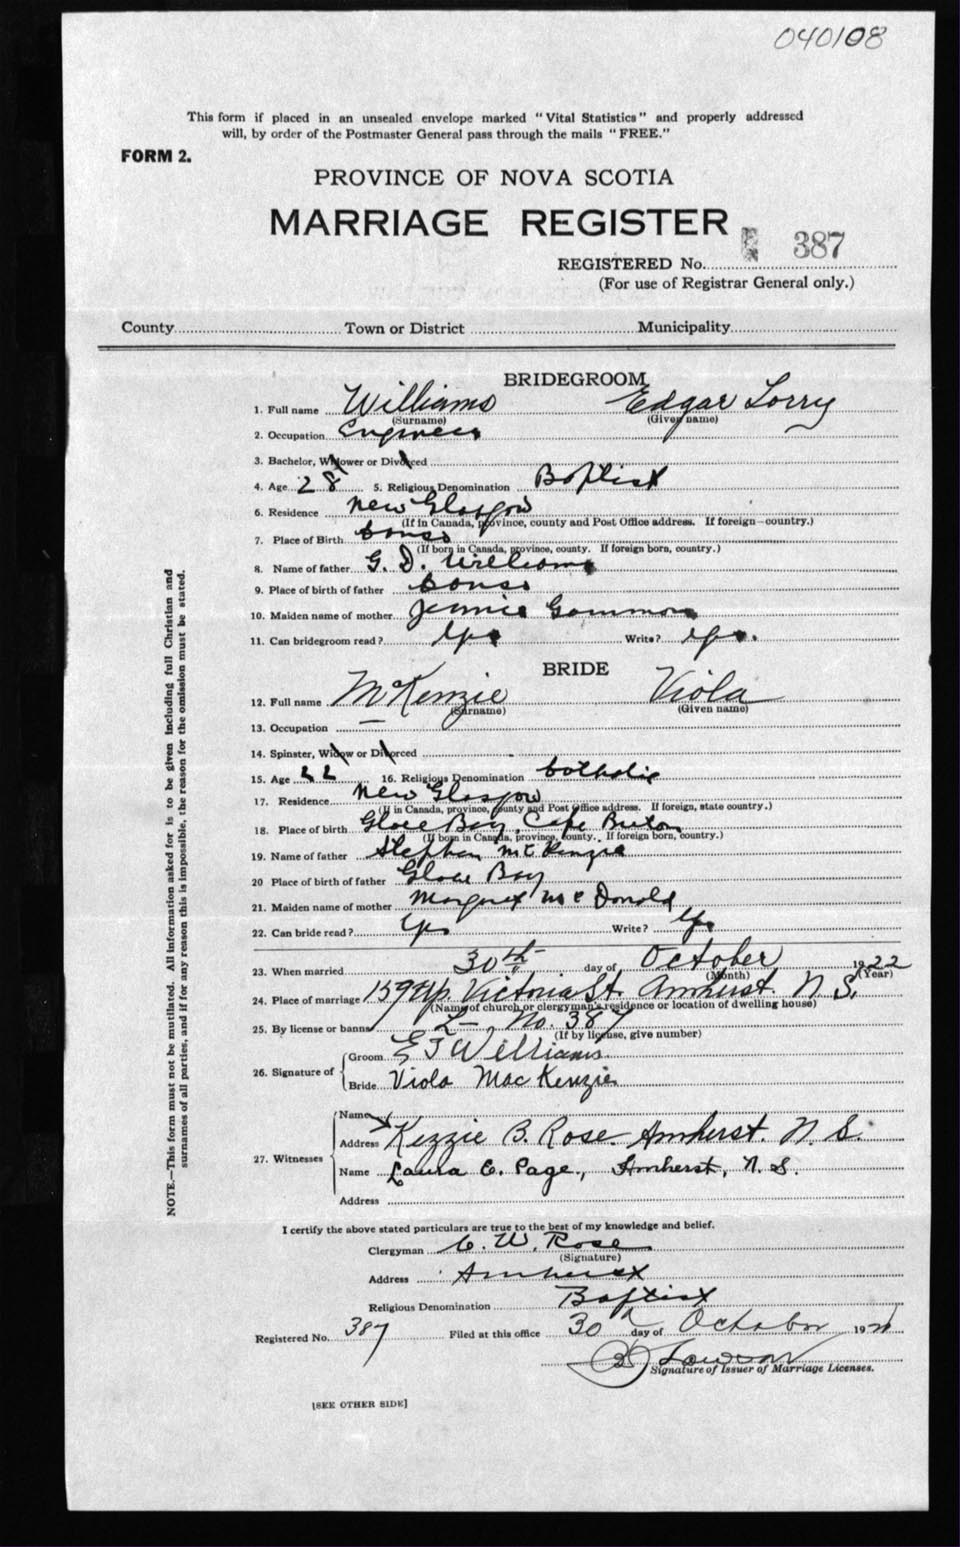 040108
This form if placed in an unsealed envelope marked "Vital Statistics" and properly addressed
will, by order of the Postmaster General pass through the mails "FREE."
FORM 2.
PROVINCE OF NOVA SCOTIA
MARRIAGE REGISTER
387
REGISTERED No.
(For use of Registrar General only.)
County Town or District Municipality
BRIDEGROOM
1. Full name Williams Edgar Lorry
(Surname) (Given name)
2. Occupation Engineer
3. Bachelor, Widower or Divorced
4. Age 28 5. Religious Denomination Baptist
6. Residence New Glasgow
(If in Canada, province, county and Post Office address. If foreign—country.)
7. Place of Birth Canso
(If born in Canada, province, county. If foreign born, country.)
8. Name of father G. D. Williams
9. Place of birth of father Canso
10. Maiden name of mother Jennie Gammon
11. Can bridegroom read? Yes Write? Yes.
BRIDE
12. Full name McKenzie Viola
(Surname) (Given name)
13. Occupation —
14. Spinster, Widow or Divorced
15. Age 22 16. Religious Denomination Catholic
17. Residence New Glasgow
(If in Canada, province, county and Post Office address. If foreign, state country.)
18. Place of birth Glace Bay, Cape Breton
(If born in Canada, province, county. If foreign born, country.)
19. Name of father Stephen McKenzie
20 Place of birth of father Glace Bay
21. Maiden name of mother Margaret McDonald
22. Can bride read? Yes Write? Yes
23. When married 30th day of October 1922
(Month) (Year)
24. Place of marriage 159 Victoria St. Amherst. N.S.
(Name of church or clergyman's residence or location of dwelling house)
25. By license or banns L—, No. 387
(If by license, give number)
26. Signature of Groom E J Williams
Bride Viola MacKenzie
27. Witnesses Name
Address Kezzie B. Rose Amherst. N.S.
Name Laura E. Page, Amherst, N.S.
Address
I certify the above stated particulars are true to the best of my knowledge and belief.
Clergyman C. W. Rose
(Signature)
Address Amherst
Religious Denomination Baptist
Registered No. 387 Filed at this office 30 day of October 192
Signature of Issuer of Marriage Licenses.
[SEE OTHER SIDE]
NOTE.—This form must not be mutilated. All information asked for is to be given including full Christian and
surnames of all parties, and if for any reason this is impossible, the reason for the omission must be stated.